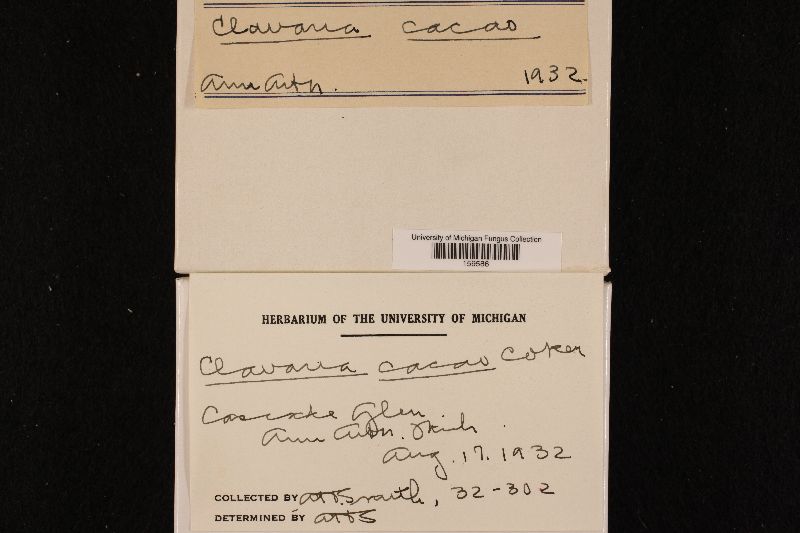 Clavaria cacao
Ann Arbr. 1932
University of Michigan Fungus Collection
159586
HERBARIUM OF THE UNIVERSITY OF MICHIGAN
Clavaria cacao Coker
Cascade Glen
Ann Arbr. Mich.
Aug. 17. 1932
COLLECTED BY AHSmith, 32-302
DETERMINED BY AHS